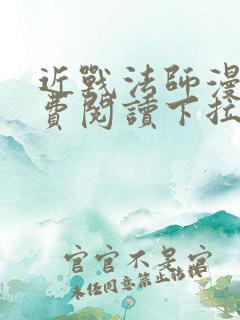 近戰法師漫
費閱讀下拉
官官不是官
未经同意禁止转载